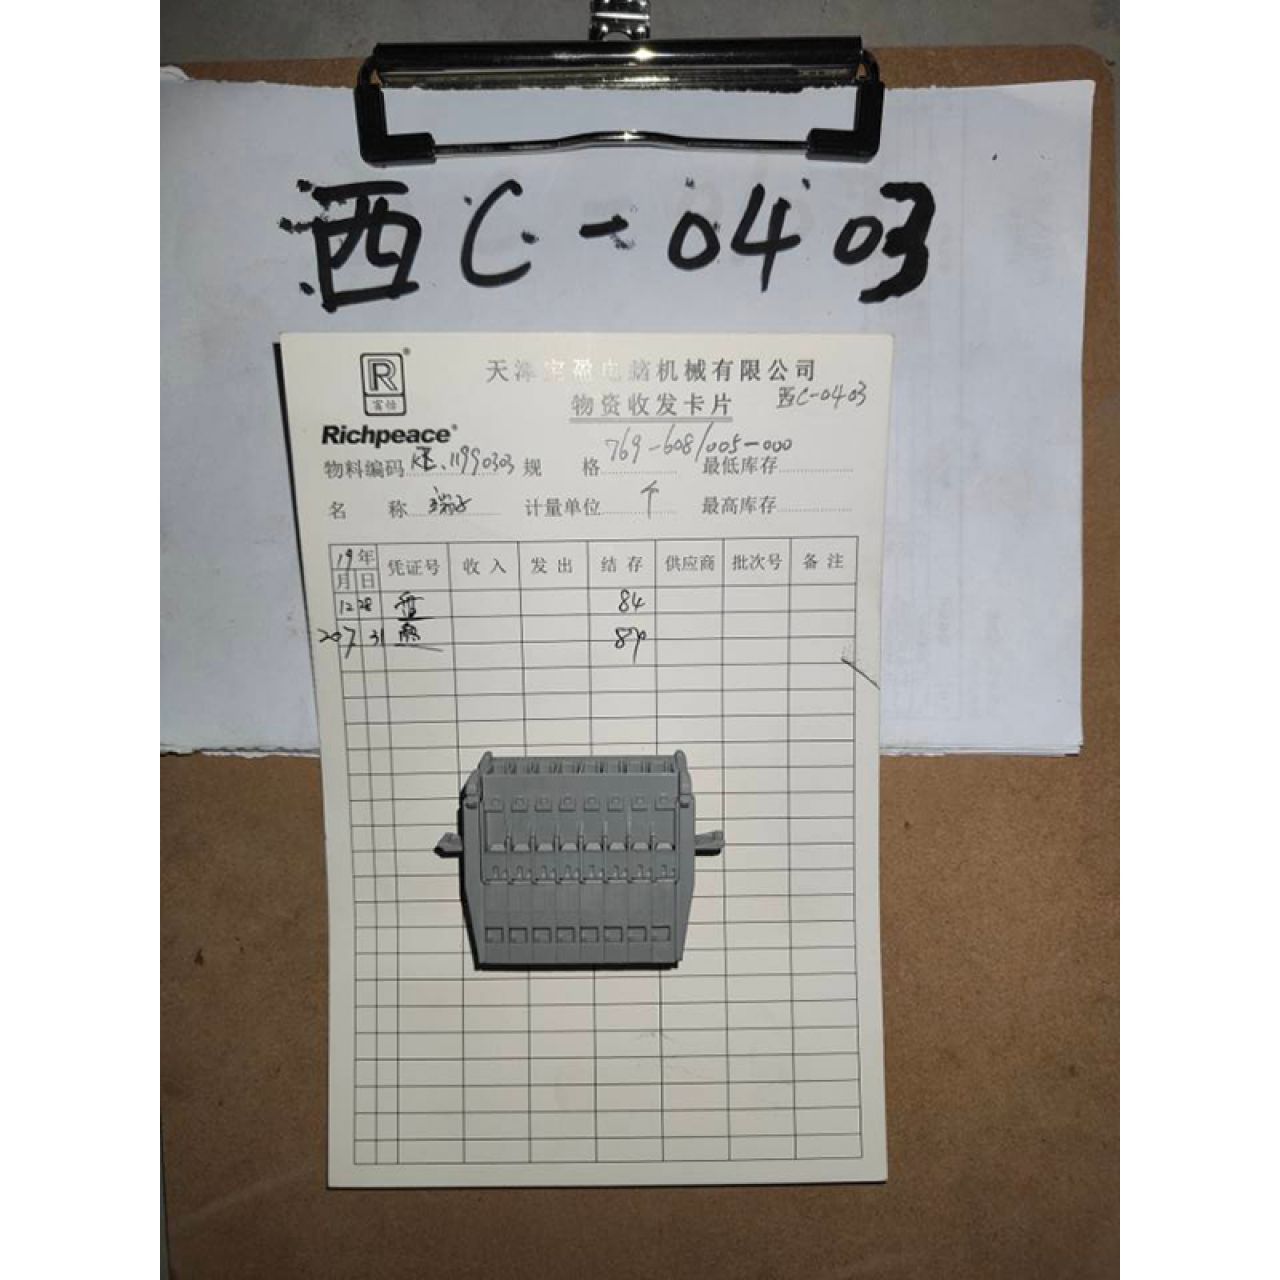 西C-0403
R®
富怡
Richpeace®
天津宝盈电脑机械有限公司
物资收发卡片 西C-0403
769-608/005-000
物料编码 11990303 规格 最低库存
名称 端子 计量单位 个 最高库存
19年 凭证号 收入 发出 结存 供应商 批次号 备注
月 日
12 28 盘 84
20 7 31 盘 84